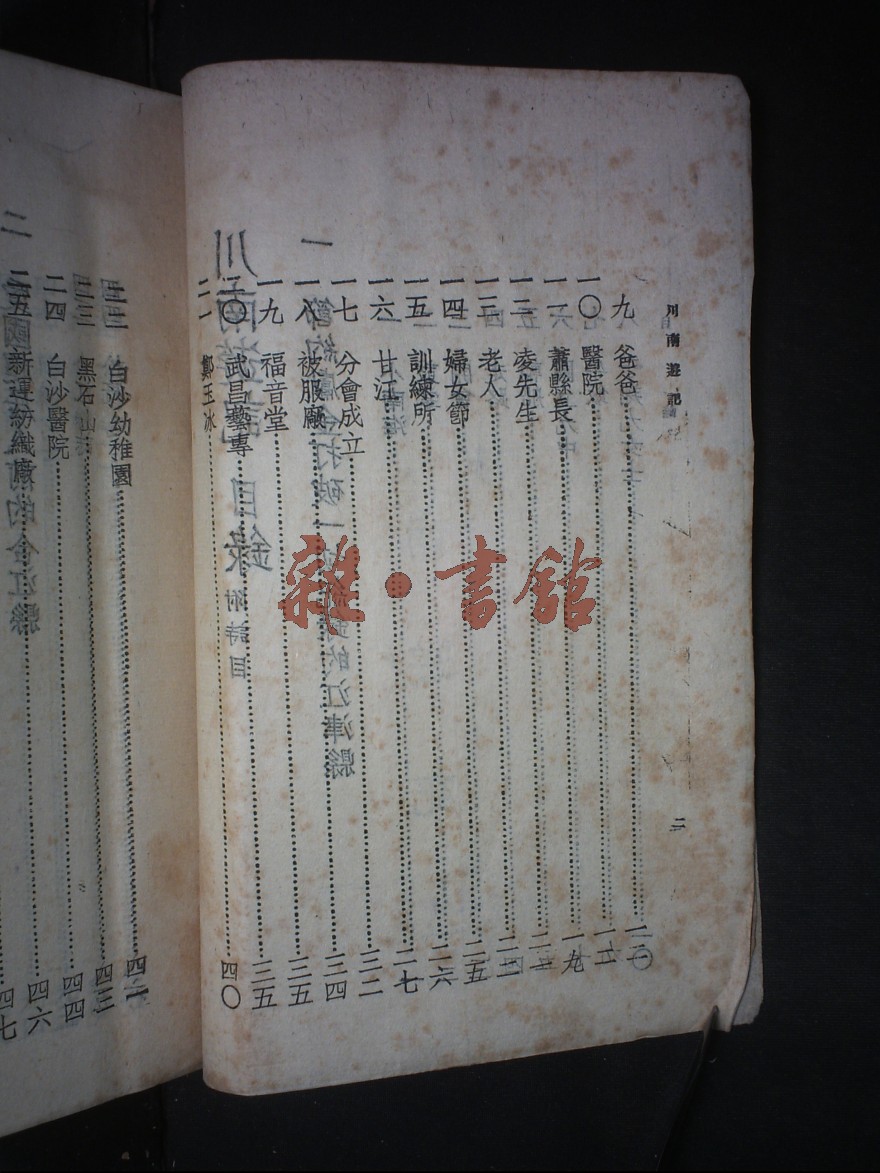 川南遊記
二
九 爸爸
一〇 醫院 一六
一一 蕭縣長 一九
一二 凌先生 二一
一三 老人 二二
一四 婦女節 二五
一五 訓練所 二六
一六 甘江 二七
一七 分會成立 三二
一八 被服廠 三四
一九 福音堂 三五
二〇 武昌藝專 三五
二一 鄭玉冰 四〇
二二 白沙幼稚園 四二
二三 黑石山 四三
二四 白沙醫院 四四
二五 新運紡織廠 四六
四七
雜·書館